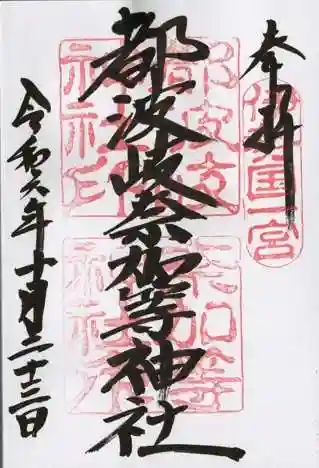 奉拝
伊勢国一宮
都波岐奈加等神社
令和六年十一月二十三日